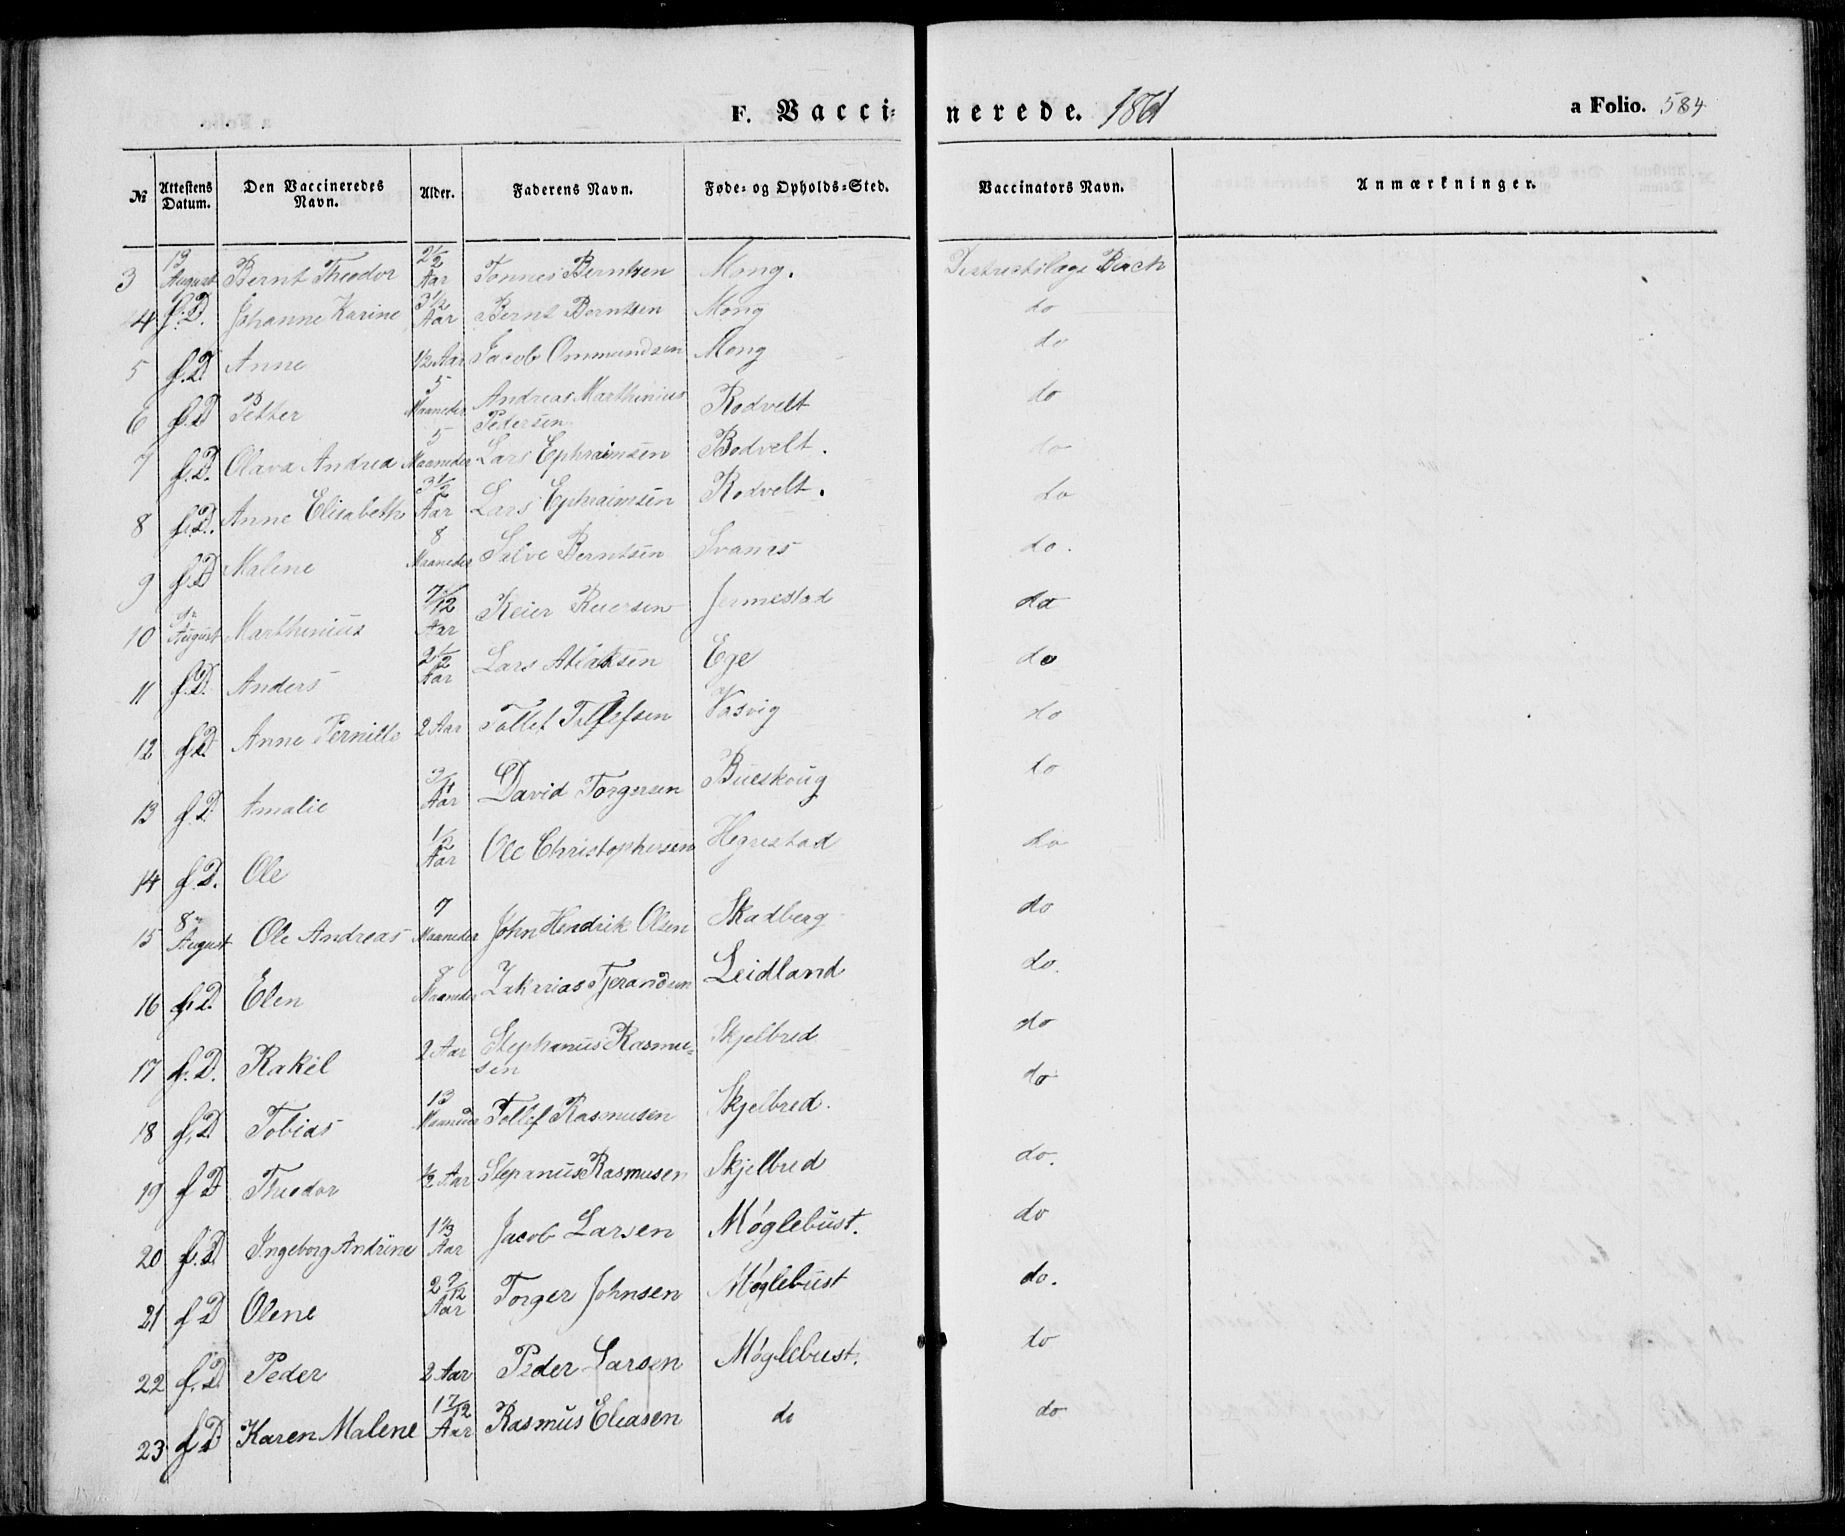 F. Vaccinerede. 1861
a Folio. 584
№ Attestens Datum. Den Vaccineredes Navn. Alder. Faderens Navn. Føde- og Opholds-Sted. Vaccinators Navn. Anmærkninger.
3 13 August Bernt Theodor 2 1/2 Aar Tønnes Berntsen Mong. Districtslæge Birch
4 f. D. Johanne Karine 3 1/2 Aar Bernt Berntsen Mong do
5 f. D. Anne 1/2 Aar Jacob Ommundsen Mong do
6 f. D Petter 5 Maaneder Andreas Marthinius Pedersen Rodvelt do
7 f. D. Olava Andrea 5 Maaneder Lars Ephraimsen Rodvelt. do
8 f. D. Anne Elisabeth 3 1/2 Aar Lars Ephraimsen Rodvelt. do
9 f. D Malene 8 Maaneder Salve Berntsen Svanes do.
10 August Marthinius 7/12 Aar Reier Reiersen Jermestad do
11 f. D. Anders 2 1/2 Aar Lars Atlaksen Ege do
12 f. D. Anne Pernille 2 Aar Tollef Tollefsen Vasvig do
13 f. D. Amalie 3/4 Aar David Torgersen Bueskoug do
14 f. D. Ole 1/2 Aar Ole Christophersen Hegrestad do
15 8de August Ole Andreas 7 Maaneder John Hendrik Olsen Skadberg do
16 f. D. Elen 8 Maaneder Zakarias Tjerandsen Leidland do.
17 f. D. Rakel 2 Aar Stephanus Rasmusen Skjelbred do
18 f. D Tobias 13 Maaneder Tollef Rasmusen Skjelbred. do
19 f D Theodor 1/2 Aar Stepanus Rasmusen Skjelbred do.
20 f. D. Ingeborg Andrine 1 1/3 Aar Jacob Larsen Møglebust. do
21 f D Olene 2 7/12 Aar Torger Johnsen Møglebust do.
22 f. D. Peder 2 Aar Peder Larsen Møglebust. do
23 f D Karen Malene 1 7/12 Aar Rasmus Eliasen do do